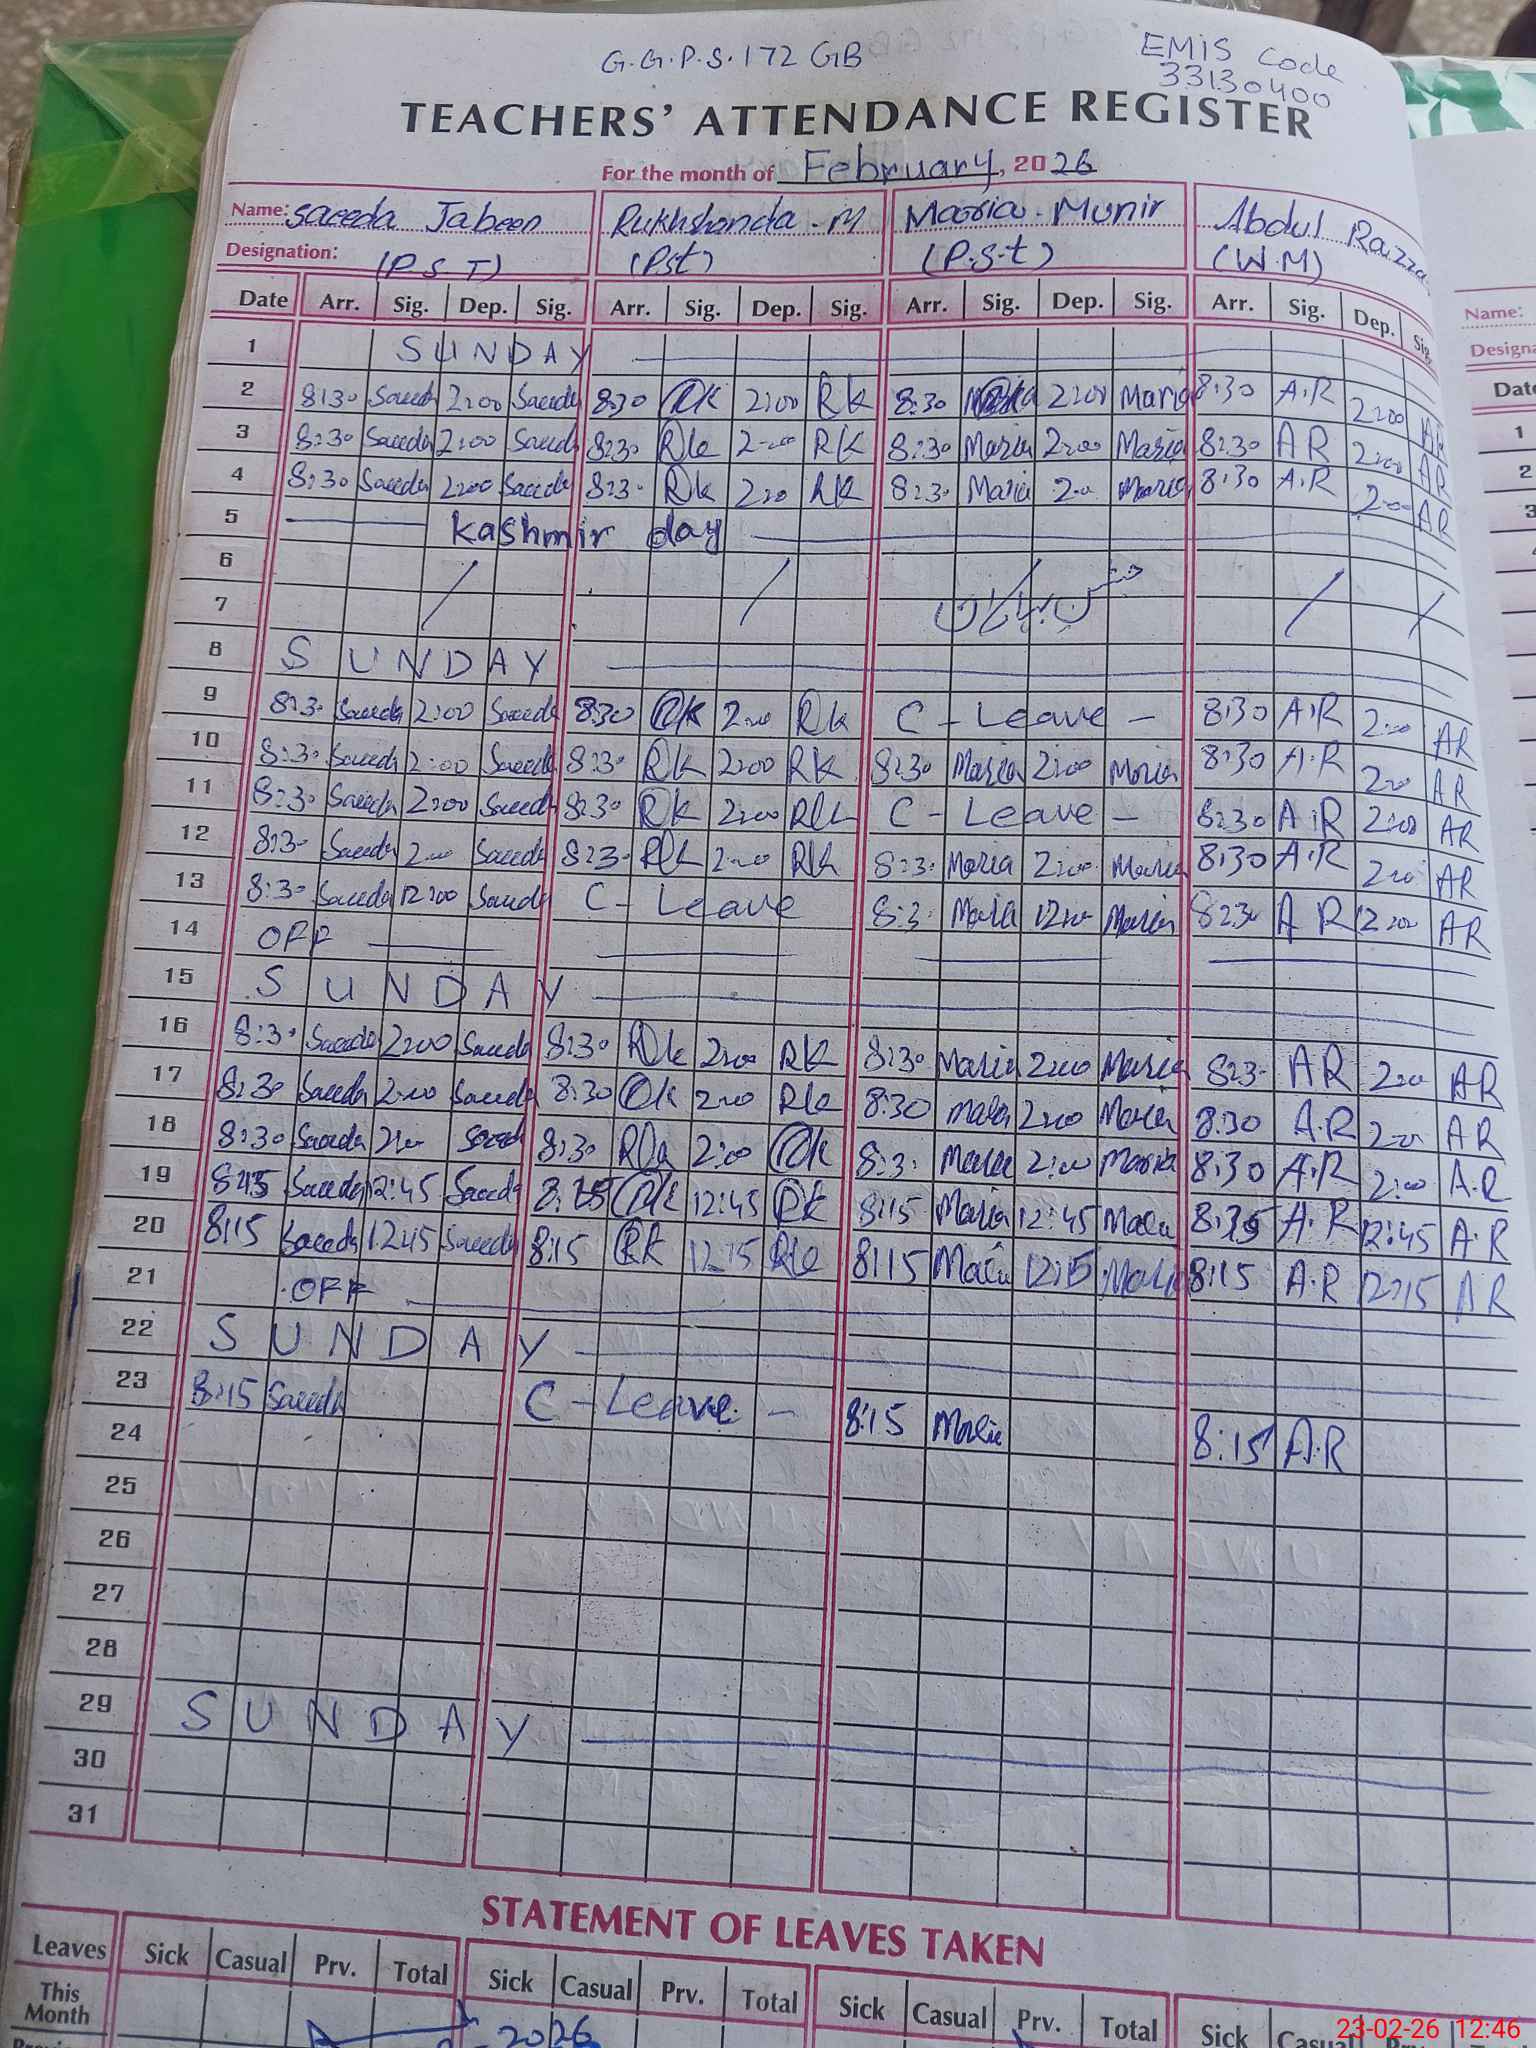 G.G.P.S. 172 GB
EMIS Code
33130400
TEACHERS' ATTENDANCE REGISTER
For the month of February, 2026
Name: Saeeda Jabeen Rukhshanda. M Maria. Munir Abdul
Designation: (P.S.T) (Pst) (P.S.t) (W.M)
Date Arr. Sig. Dep. Sig. Arr. Sig. Dep. Sig. Arr. Sig. Dep. Sig. Arr. Sig. Dep. Sig.
1 SUNDAY
2 8:30 Saeeda 2:00 Saeeda 8:30 RK 2:00 RK 8:30 Maria 2:00 Maria 8:30 A.R 2:00 AR
3 8:30 Saeeda 2:00 Saeeda 8:30 Rk 2:00 RK 8:30 Maria 2:00 Maria 8:30 AR 2:00 AR
4 8:30 Saeeda 2:00 Saeeda 8:3. Rk 2:0 RK 8:3. Maria 2:0 Maria 8:30 A.R 2:00 AR
5 Kashmir day
6
7 جشن بہاراں
8 SUNDAY
9 8:3. Saeeda 2:00 Saeeda 8:30 RK 2:00 Rk C - Leave - 8:30 A.R 2:00 AR
10 8:3. Saeeda 2:00 Saeeda 8:3. Rk 2:00 RK 8:30 Maria 2:00 Maria 8:30 A.R 2:00 AR
11 8:3. Saeeda 2:00 Saeeda 8:30 RK 2:00 RK C - Leave - 8:30 A.R 2:00 AR
12 8:3. Saeeda 2:00 Saeeda 8:3. Rk 2:00 RK 8:3. Maria 2:00 Maria 8:30 A.R 2:00 AR
13 8:3. Saeeda 12:00 Saeeda C - Leave 8:3. Maria 12:00 Maria 8:30 AR 12:00 AR
14 OFF
15 SUNDAY
16 8:3. Saeeda 2:00 Saeeda 8:30 Rk 2:00 RK 8:30 Maria 2:00 Maria 8:3. AR 2:00 AR
17 8:30 Saeeda 2:00 Saeeda 8:30 Rk 2:00 Rk 8:30 Maria 2:00 Maria 8:30 A.R 2:00 AR
18 8:30 Saeeda 2:00 Saeeda 8:30 2:00 Rk 8:3. Maria 2:00 Maria 8:30 A.R 2:00 A.R
19 Saeeda 12:45 Saeeda Rk 12:45 RK 8:15 Maria 12:45 Maria A.R 12:45 A.R
20 8:15 Saeeda 12:15 Saeeda 8:15 RK 12:15 Rk 8:15 Maria 12:15 Maria 8:15 A.R 12:15 AR
21 OFF
22 SUNDAY
23 8:15 Saeeda C - Leave - 8:15 Maria 8:15 A.R
24
25
26
27
28
29 SUNDAY
30
31
STATEMENT OF LEAVES TAKEN
Leaves Sick Casual Prv. Total Sick Casual Prv. Total Sick Casual Prv. Total Sick
This
Month
2026
23-02-26 12:46
Name:
Date
1
2
3